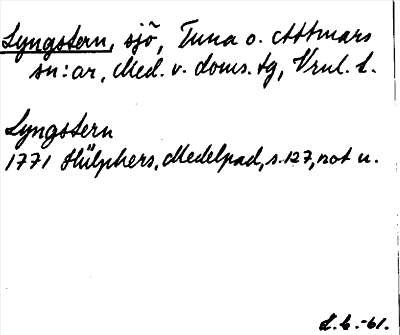 Lyngstern, sjö, Tuna o. Attmars
sn:ar, Med. v. doms. tg, Vrnl. L.
Lyngstern
1771 Hülphers, Medelpad, s. 127, not u.
L.C.-61.